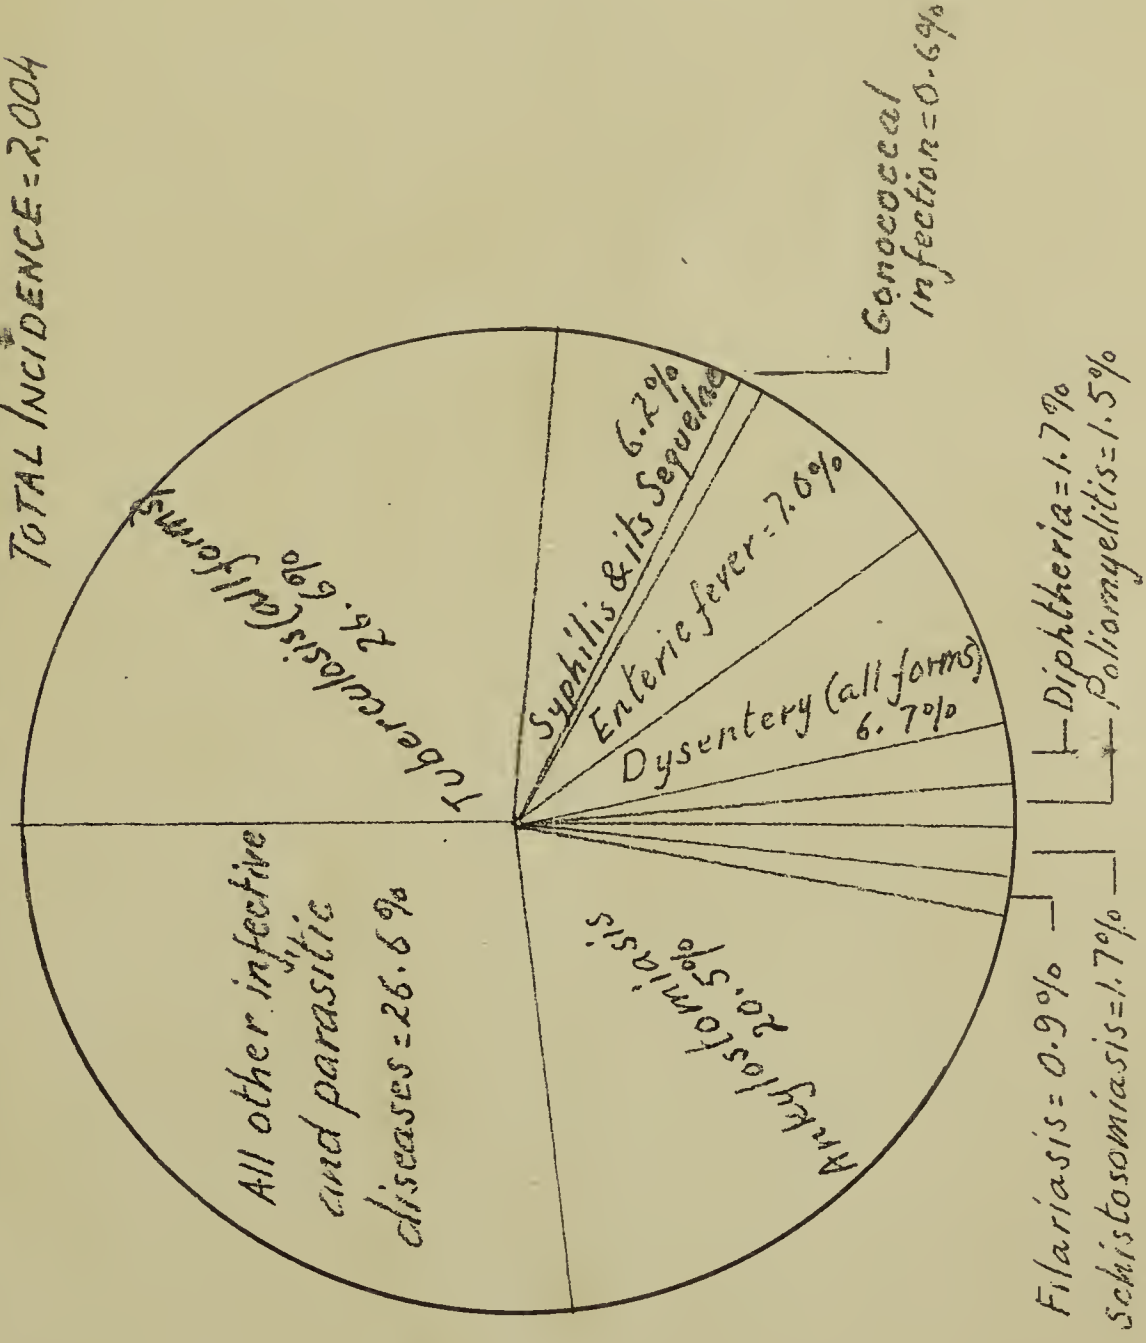 TOTAL INCIDENCE = 2,004
Tuberculosis (all forms)
26.6%
6.2%
Syphilis & its Sequelae
Gonococcal
infection = 0.6%
Enteric fever = 7.0%
Dysentery (all forms)
6.7%
Diphtheria = 1.7%
Poliomyelitis = 1.5%
Schistosomiasis = 1.7%
Filariasis = 0.9%
Ankylostomiasis
20.5%
All other infective
and parasitic
diseases = 26.6%